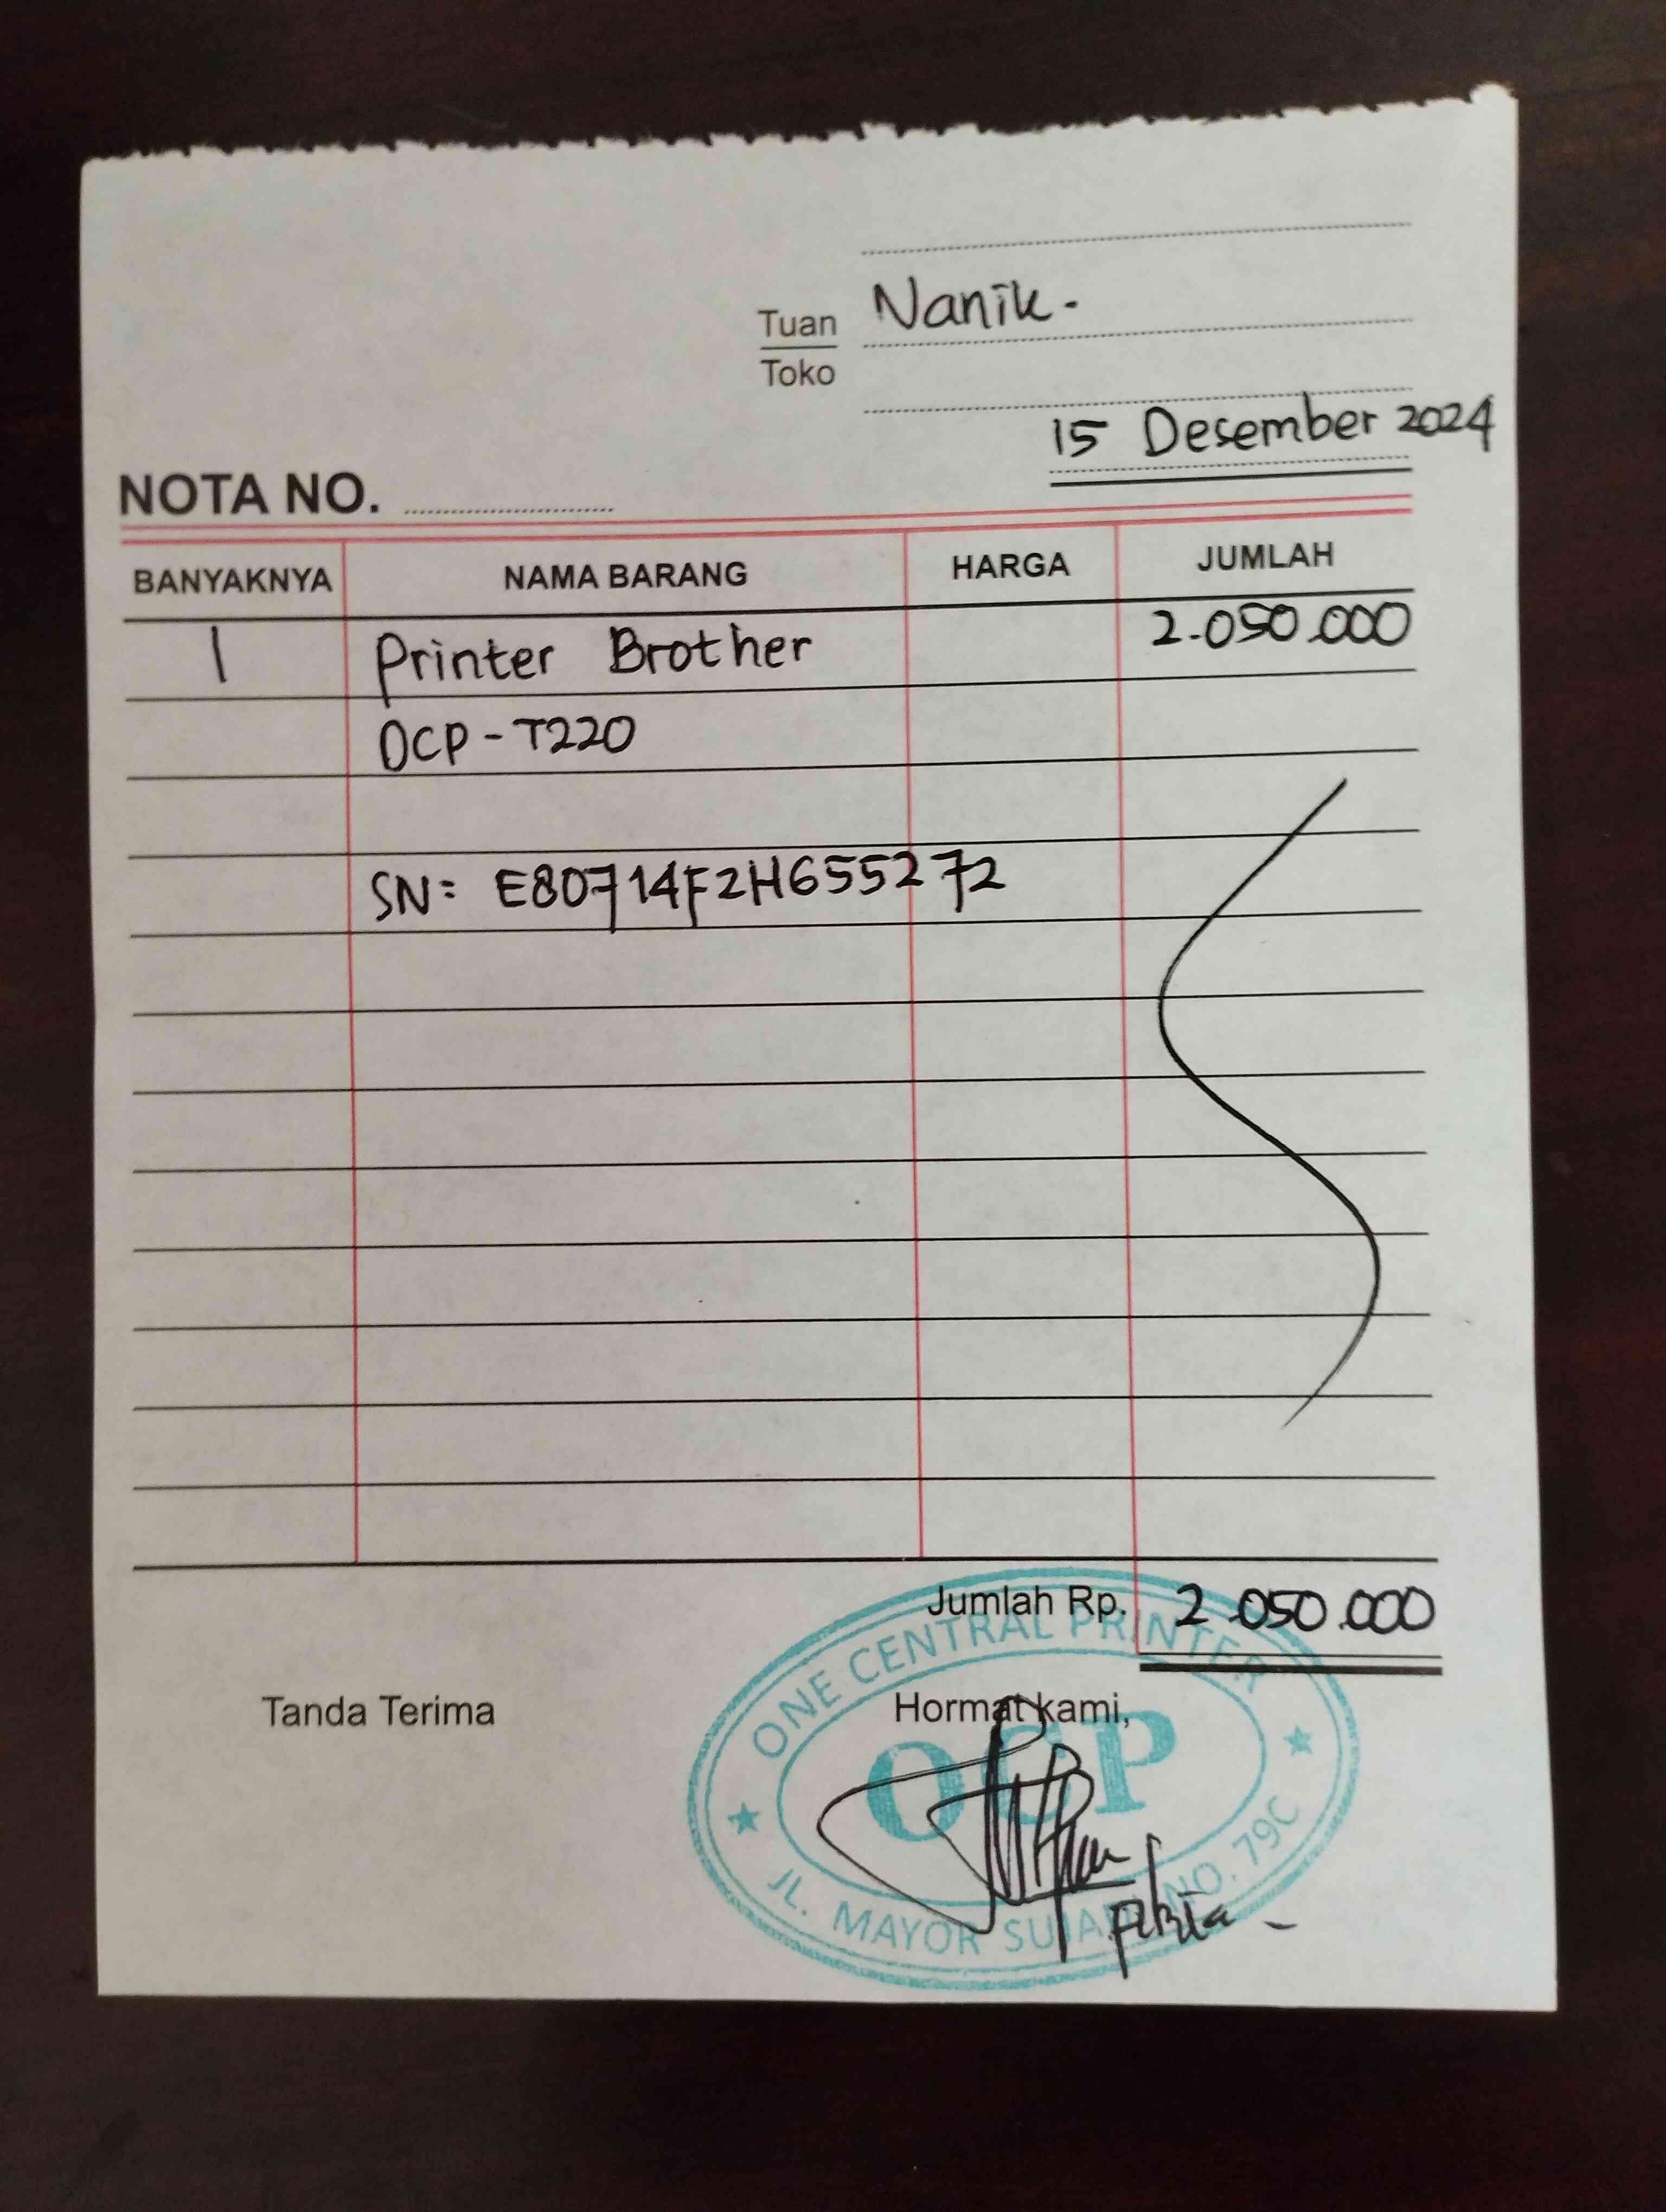 Tuan Nanik -
Toko
15 Desember 2024
NOTA NO.
BANYAKNYA NAMA BARANG HARGA JUMLAH
1 Printer Brother 2.050.000
DCP - T220
SN: E80714F2H655272
Jumlah Rp. 2.050.000
Tanda Terima Hormat kami,
ONE CENTRAL PRINTER
OCP
JL. MAYOR NO. 79C